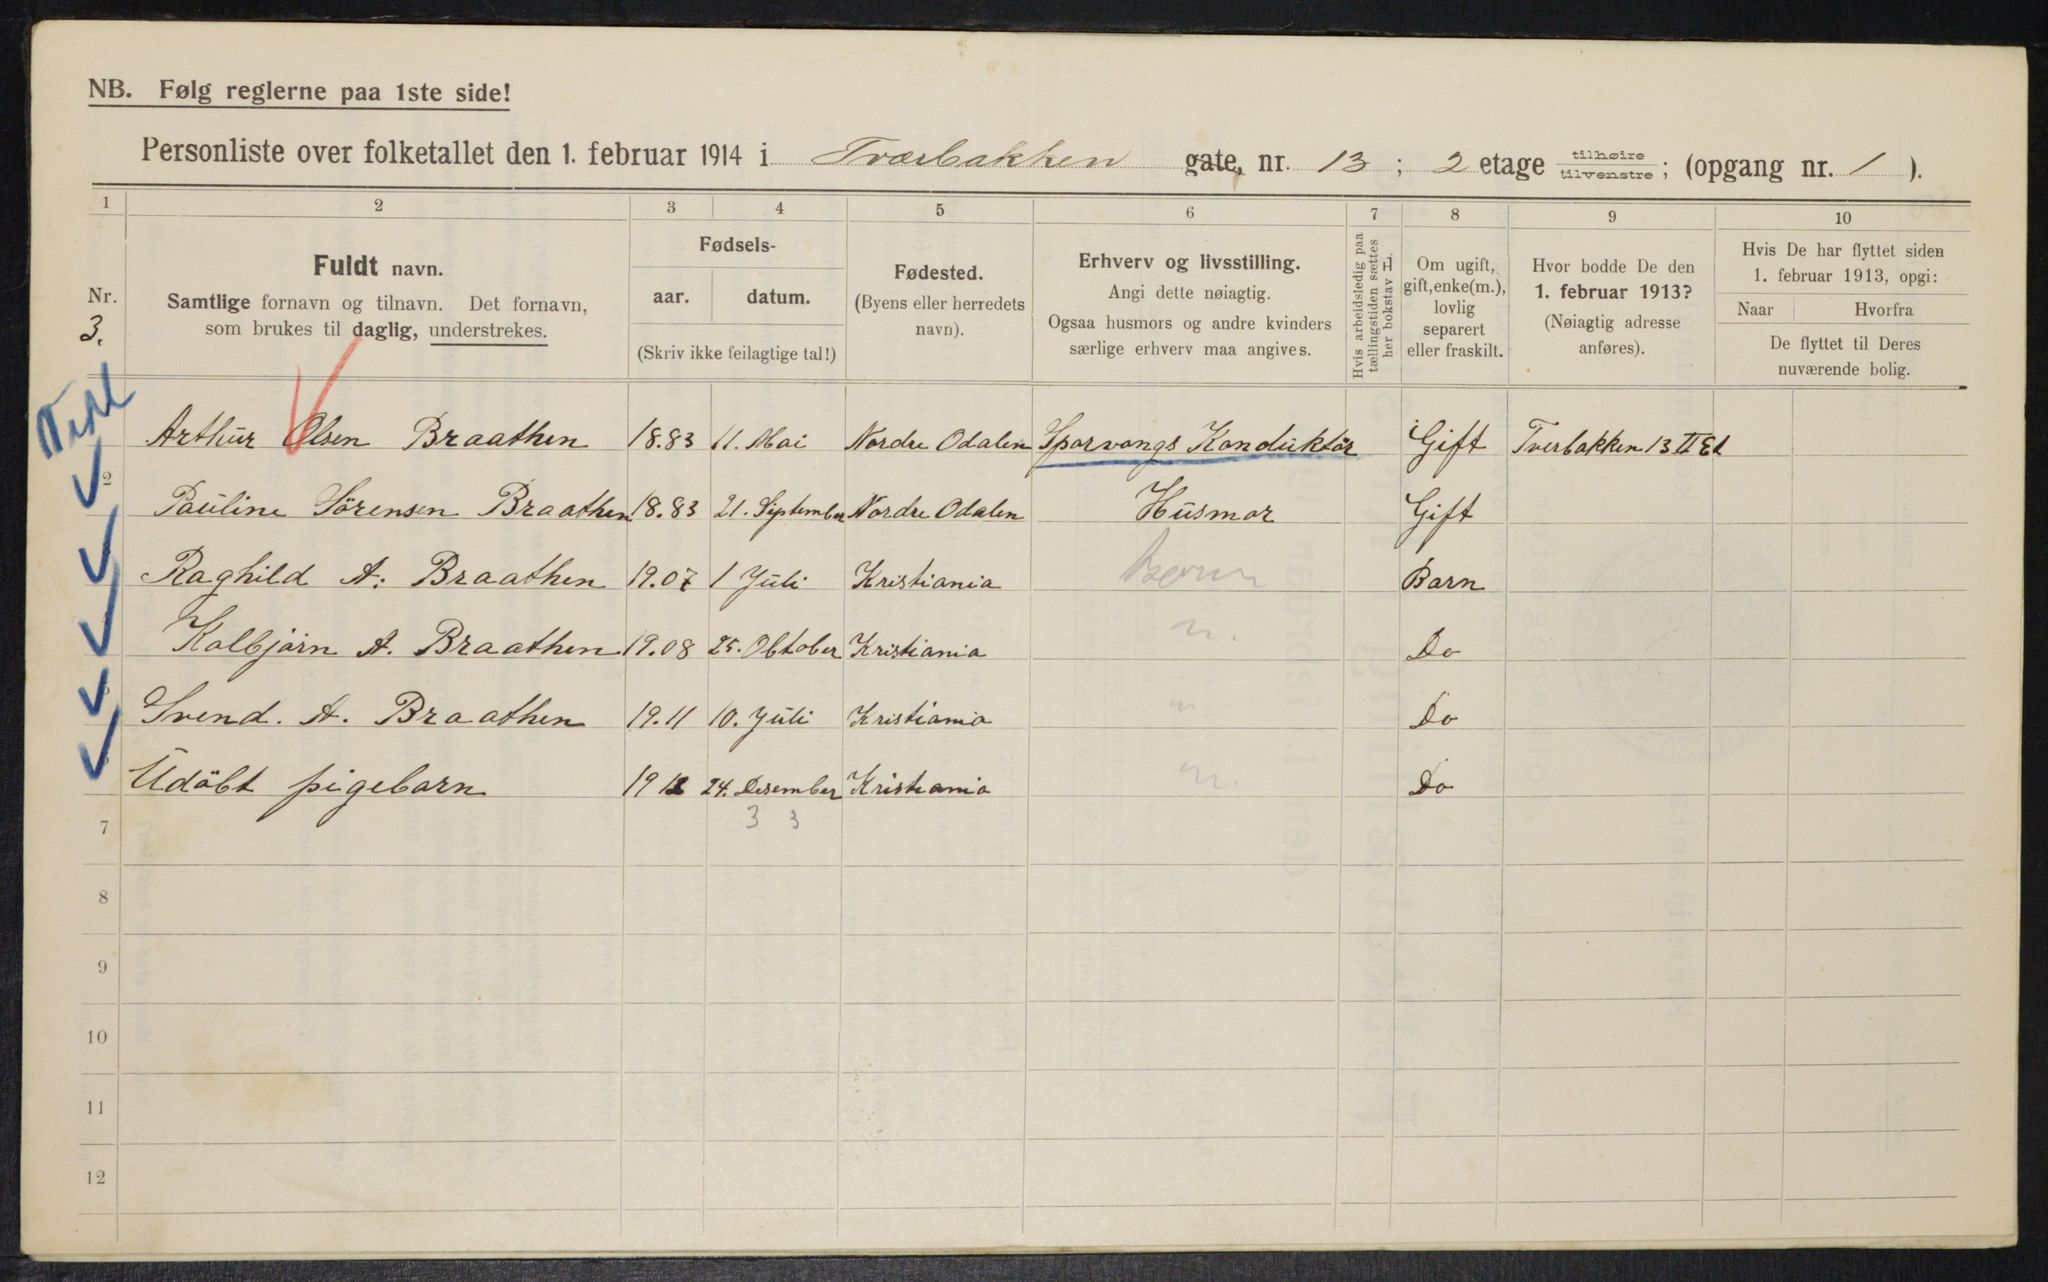 NB. Følg reglerne paa 1ste side!
Personliste over folketallet den 1. februar 1914 i Tværbakken gate, nr. 13 ; 2 etage tilhøire tilvenstre ; (opgang nr. 1 ).
1 2 3 4 5 6 7 8 9 10
Nr. 3.
Fuldt navn.
Samtlige fornavn og tilnavn. Det fornavn,
som brukes til daglig, understrekes.
Fødsels-
aar. datum.
(Skriv ikke feilagtige tal!)
Fødested.
(Byens eller herredets
navn).
Erhverv og livsstilling.
Angi dette nøiagtig.
Ogsaa husmors og andre kvinders
særlige erhverv maa angives.
Hvis arbeidsledig paa
tællingstiden sættes
her bokstav L
Om ugift,
gift, enke(m.),
lovlig
separert
eller fraskilt.
Hvor bodde De den
1. februar 1913?
(Nøiagtig adresse
anføres).
Hvis De har flyttet siden
1. februar 1913, opgi:
Naar Hvorfra
De flyttet til Deres
nuværende bolig.
Arthur Olsen Braathen 18.83 11. Mai Nordre Odalen Sporvangs Konduktör Gift Tverbakken 13 II Et
2 Pauline Sörensen Braathen 18.83 21. September Nordre Odalen Husmor Gift
Raghild A. Braathen 19.07 1 Juli Kristiania Barn
Kolbjörn A. Braathen 19.08 25. Obtober Kristiania " Do
Svend. A. Braathen 19.11 10. Juli Kristiania " Do
Udöbt pigebarn 1913 24. Desember Kristiania " Do
3 3
7
8
9
10
11
12